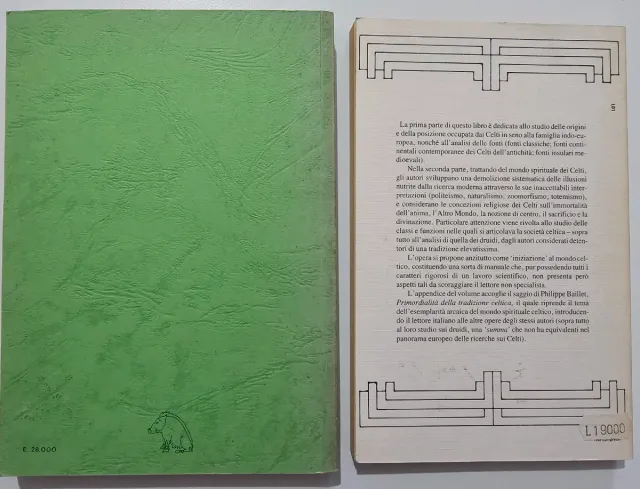 £. 28.000
La prima parte di questo libro è dedicata allo studio delle origini
e della posizione occupata dai Celti in seno alla famiglia indo-eu-
ropea, nonché all'analisi delle fonti (fonti classiche; fonti conti-
nentali contemporanee dei Celti dell'antichità; fonti insulari me-
dioevali).
Nella seconda parte, trattando del mondo spirituale dei Celti,
gli autori sviluppano una demolizione sistematica delle illusioni
nutrite dalla ricerca moderna attraverso le sue inaccettabili inter-
pretazioni (politeismo, naturalismo, zoomorfismo, totemismo),
e considerano le concezioni religiose dei Celti sull'immortalità
dell'anima, l'Altro Mondo, la nozione di centro, il sacrificio e la
divinazione. Particolare attenzione viene rivolta allo studio delle
classi e funzioni nelle quali si articolava la società celtica – sopra
tutto all'analisi di quella dei druidi, dagli autori considerati deten-
tori di una tradizione elevatissima.
L'opera si propone anzitutto come 'iniziazione' al mondo cel-
tico, costituendo una sorta di manuale che, pur possedendo tutti i
caratteri rigorosi di un lavoro scientifico, non presenta però
aspetti tali da scoraggiare il lettore non specialista.
L'appendice del volume accoglie il saggio di Philippe Baillet,
Primordialità della tradizione celtica, il quale riprende il tema
dell'esemplarità arcaica del mondo spirituale celtico, introducen-
do il lettore italiano alle altre opere degli stessi autori (sopra tutto
al loro studio sui druidi, una 'summa' che non ha equivalenti nel
panorama europeo delle ricerche sui Celti).
L19000